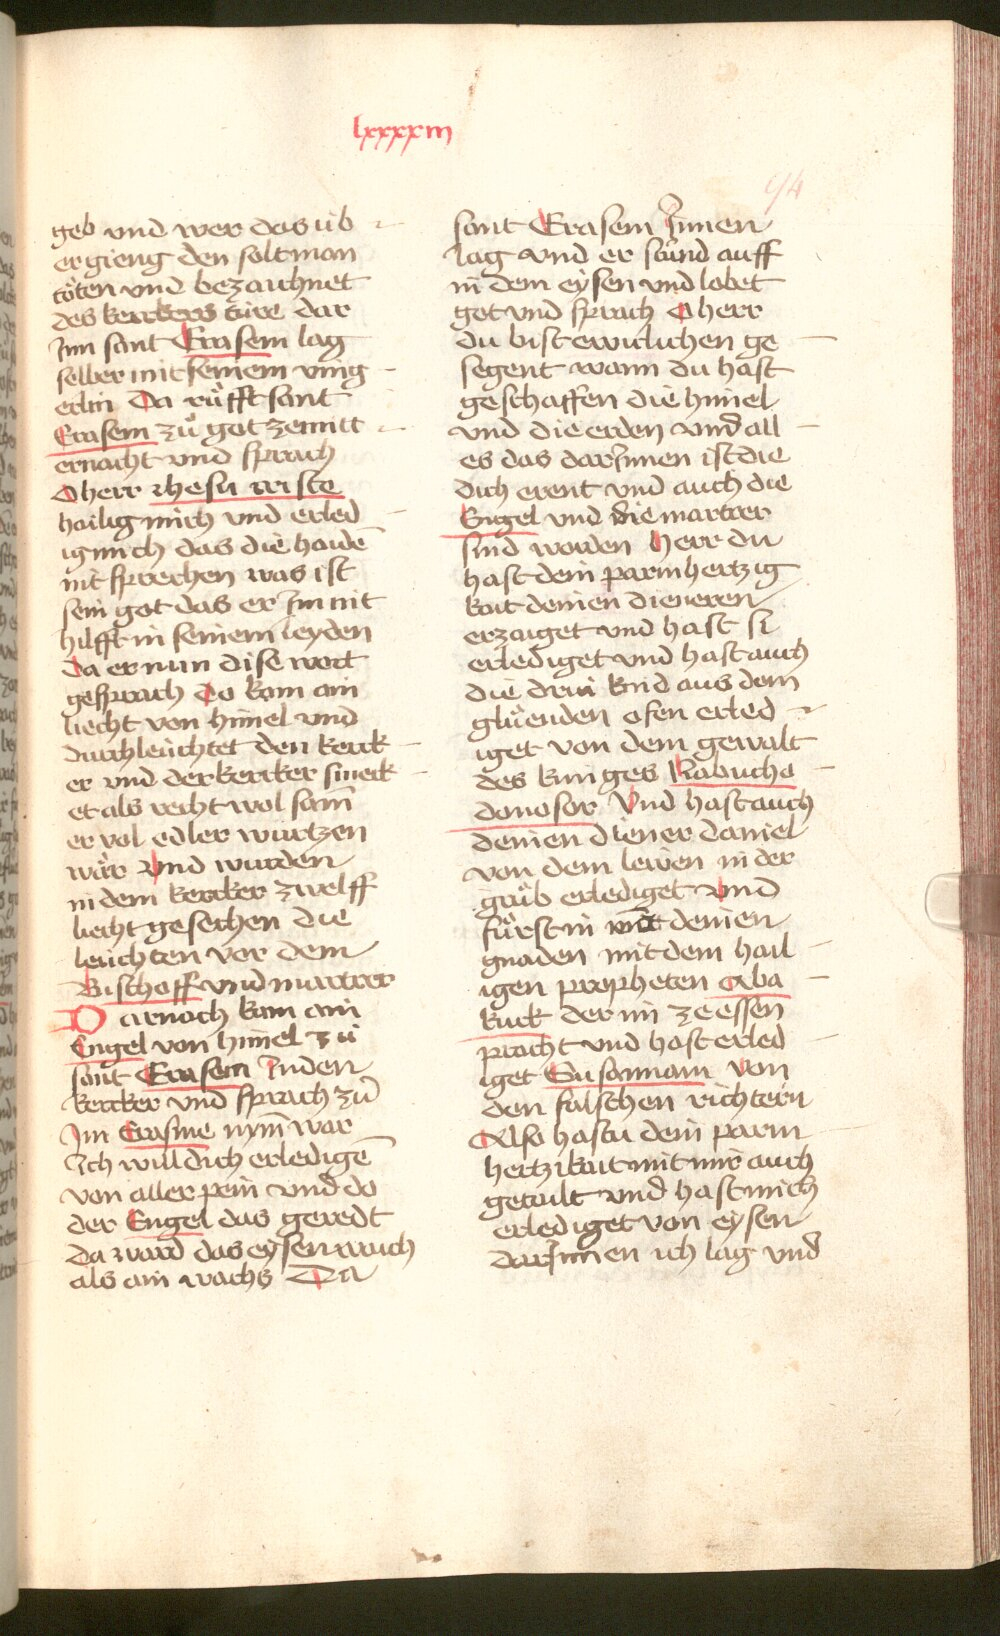 lxxxxiii
94
geb vnd wer das üb
ergieng den solt man
töten vnd bezaichnet
des kerckers türe dar
Jnn sant Erasem lag
selber mit seinem ving
erlin Da rüfft sant
Erasem zů got zemitt
ernacht vnd sprach
O herr ihesu criste
hailig mich vnd erled
ig mich das die haidē
nit sprechen was ist
sein got das er Jm nit
hilfft in seinem leyden
Da er nun dise wort
gesprach do kam ain
liecht von himel vnd
durchleüchtet den kerck
er vnd der kercker smeck
et als recht wol sam̄
er vol edler würtzen
wär vnd wurden
in dem kercker zwelff
liecht gesechen die
leüchten vor dem
Bischoff vnd martrer
Darnach kam ain
Engel von himel zů
sant Erasem Jnden
kercker vnd sprach zů
Jm Erasme nym̄ war
Ich will dich erledigē
von aller pein vnd do
der Engel das geredt
Da ward das eysen waich
als ain wachs Da
sant Erasem Jnnen
lag vnd er stůnd auff
in dem eysen vnd lobet
got vnd sprach O herr
du bist ewiclichen ge
segent wann du hast
geschaffen die himel
vnd die erden vnd all
es das darJnnen ist die
dich erent vnd auch die
Engel vnd die martrer
sind worden herr du
hast dein parmhertzig
kait deinen dieneren
erzaiget vnd hast si
erlediget vnd hast auch
die drüi kind aus dem
glüenden ofen erled
iget von dem gewalt
des kuniges Nabucho
donosor Vnd hast auch
deinen diener daniel
von dem lewen in der
grůb erlediget vnd
fürst in mit deinen
gnaden mit dem hail
igen propheten Aba
kuck der im ze essen
pracht vnd hast erled
iget Susannam von
den falschen richtern
Also hastu dein parm
hertzikait mit mir auch
getailt vnd hast mich
erlediget von eysen
darJnnen ich lag vnd